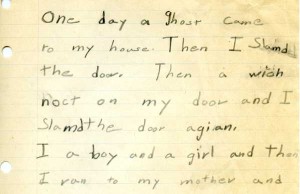 One day a ghost came
to my house. Then I Slamd
the door. Then a wich
noct on my door and I
Slamd the door agian.
I a boy and a girl and then
I ran to my mother and